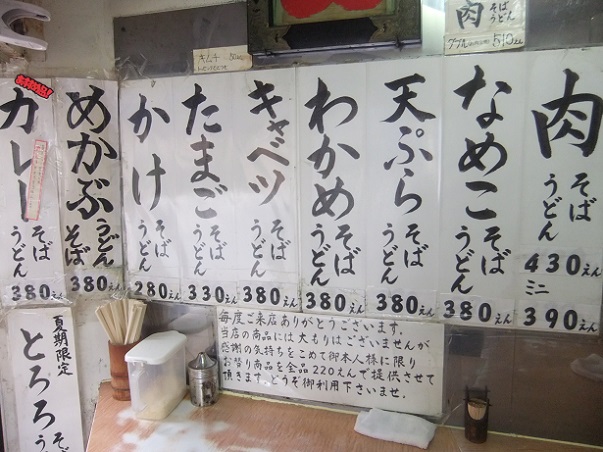 肉
そば
うどん
ダブル
510えん
キムチ
肉
そば
うどん
430えん
ミニ
390えん
なめこ
そば
うどん
380えん
天ぷら
そば
うどん
380えん
わかめ
そば
うどん
380えん
キャベツ
そば
うどん
380えん
たまご
そば
うどん
330えん
かけ
そば
うどん
280えん
めかぶ
うどん
そば
380えん
カレー
そば
うどん
380えん
夏期限定
とろろ
そば
う
毎度ご来店ありがとうございます。
当店の商品には大もりはございませんが
感謝の気持ちをこめて御本人様に限り
お替り商品を全品220えんで提供させて
頂きます。どうぞ御利用下さいませ。